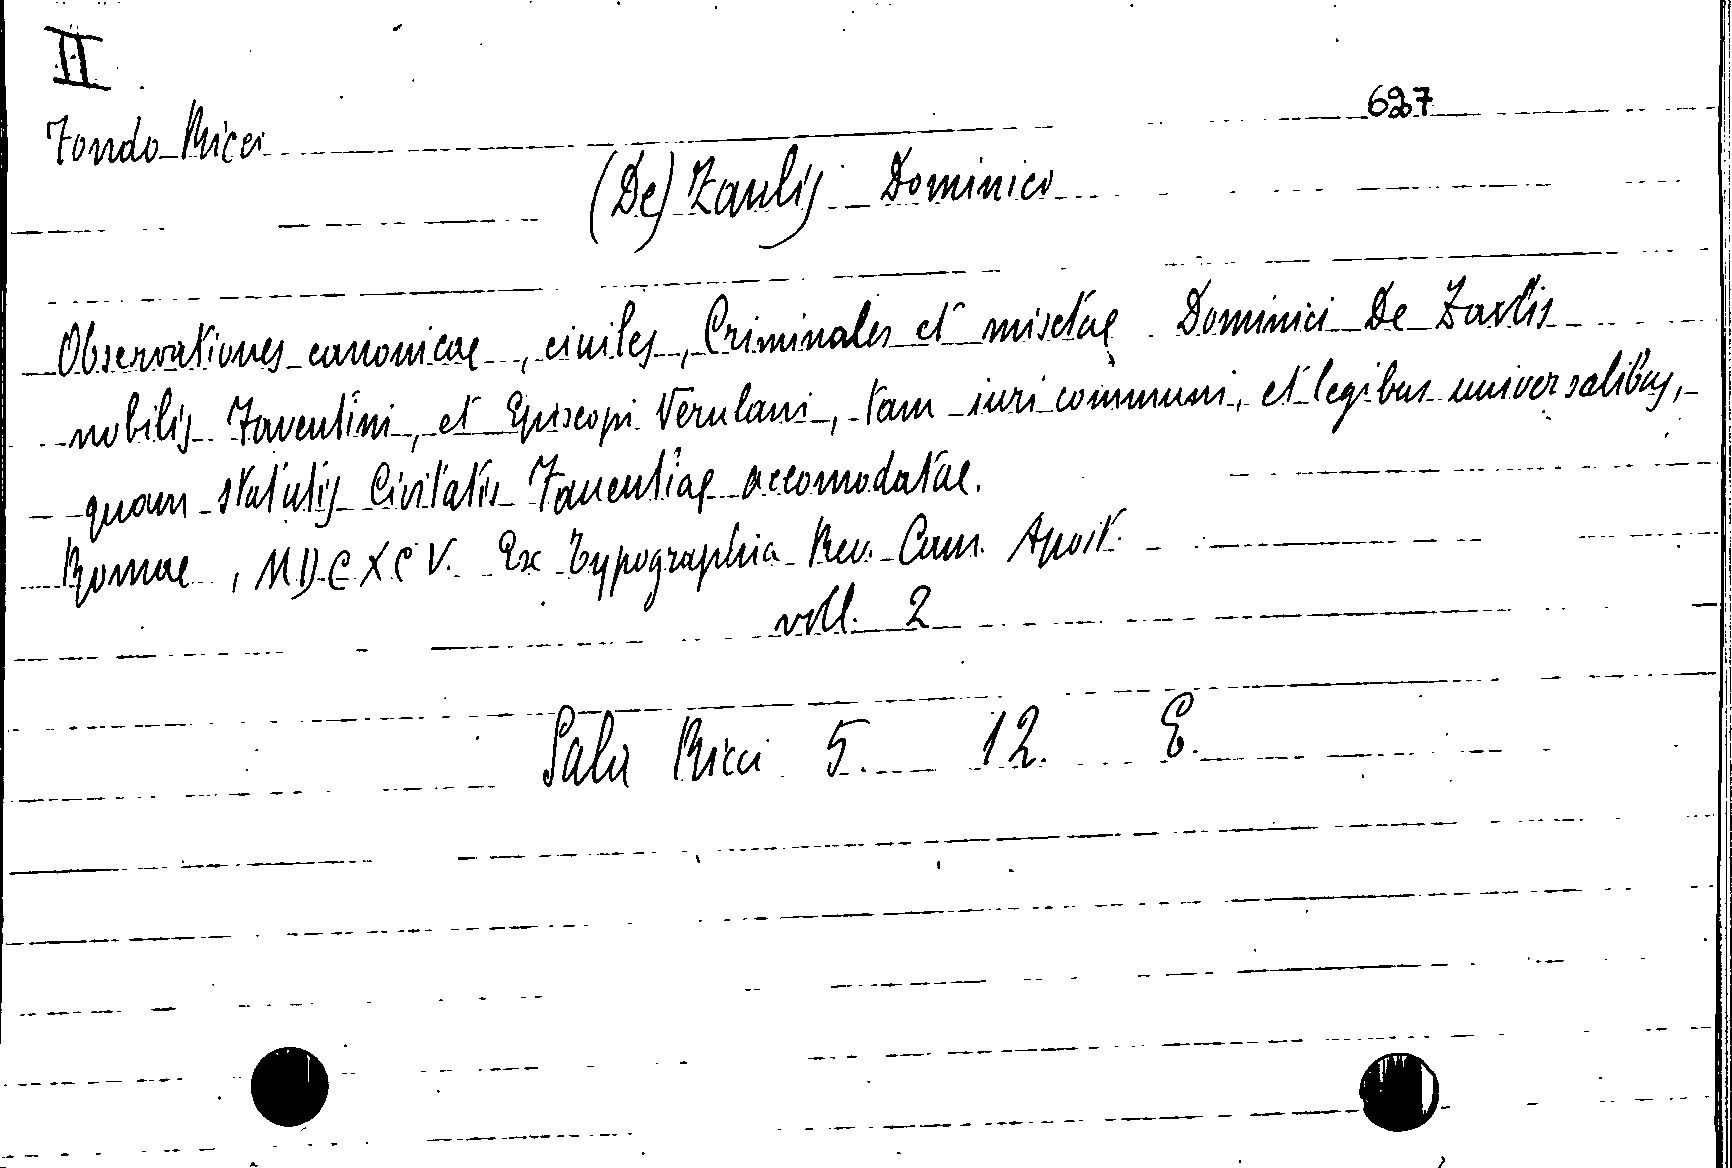 II
Fondo Ricci
627
(De) Zaulis Dominico
Observationes canonicae, civiles, Criminales et misctae Dominici De Zaulis
nobilis Faventini, et Episcopi Verulani, tam iuri communi, et legibus universalibus,
quam statutis Civitatis Faventiae accomodatae.
Romae, MDCXCV. Ex Typographia Rev. Cam. Apost.
voll. 2
Sala Ricci 5. 12. E.